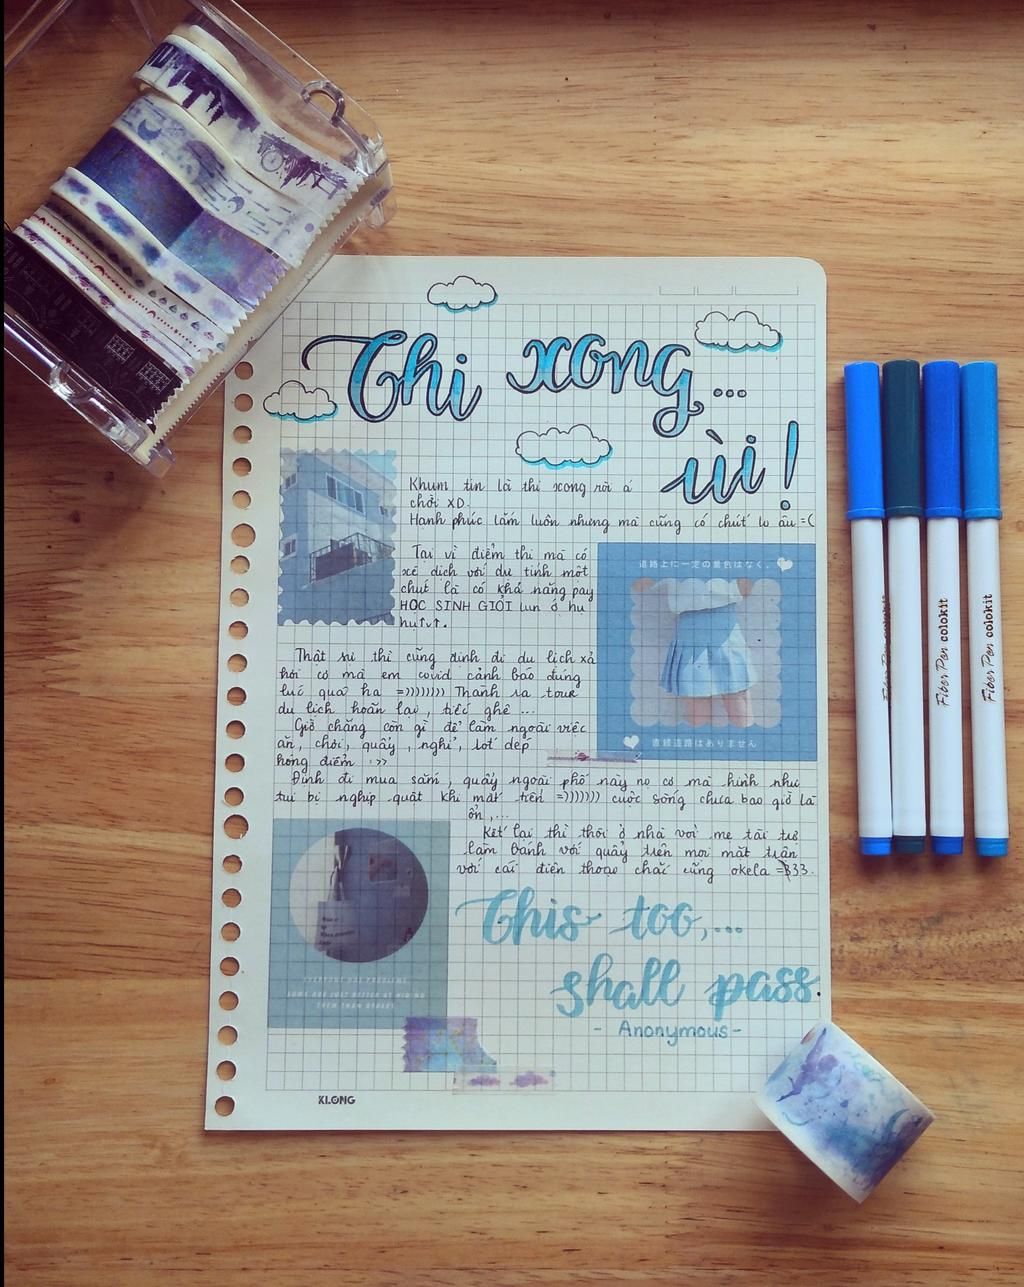 Thi xong...
ùi!
Khum tin là thi xong rồi á
chời XD.
Hạnh phúc lắm luôn nhưng mà cũng có chút lo âu =(
Tại vì điểm thi mà có
xê dịch với dự tính một
chút là có khả năng pay
HỌC SINH GIỎI lun ó hu
hu
Thật sự thì cũng định đi du lịch xả
hơi cơ mà em covid cảnh báo đúng
lúc quá ha =)))))))) Thành ra tour
du lịch hoãn lại, tiếc ghê ...
Giờ chẳng còn gì để làm ngoài việc
ăn, chơi, quẩy, nghỉ, lót dép
hóng điểm :>>
Định đi mua sắm, quẩy ngoài phố này nọ cơ mà hình như
tui bị nghịp quật khi mất tiền =))))))) cuộc sống chưa bao giờ là
ổn,...
Kết lại thì thôi ở nhà với mẹ tài trợ
làm bánh với quẩy trên mọi mặt trận
với cái điện thoại chắc cũng okela =333.
道路上に一定の景色はなく、
直線道路はありません
EVERYONE HAS PROBLEMS.
SOME ARE JUST BETTER AT HIDING
THEM THAN OTHERS
This too,...
shall pass.
- Anonymous -
KLONG
Fiber Pen colokit
Fiber Pen colokit
Fiber Pen colokit